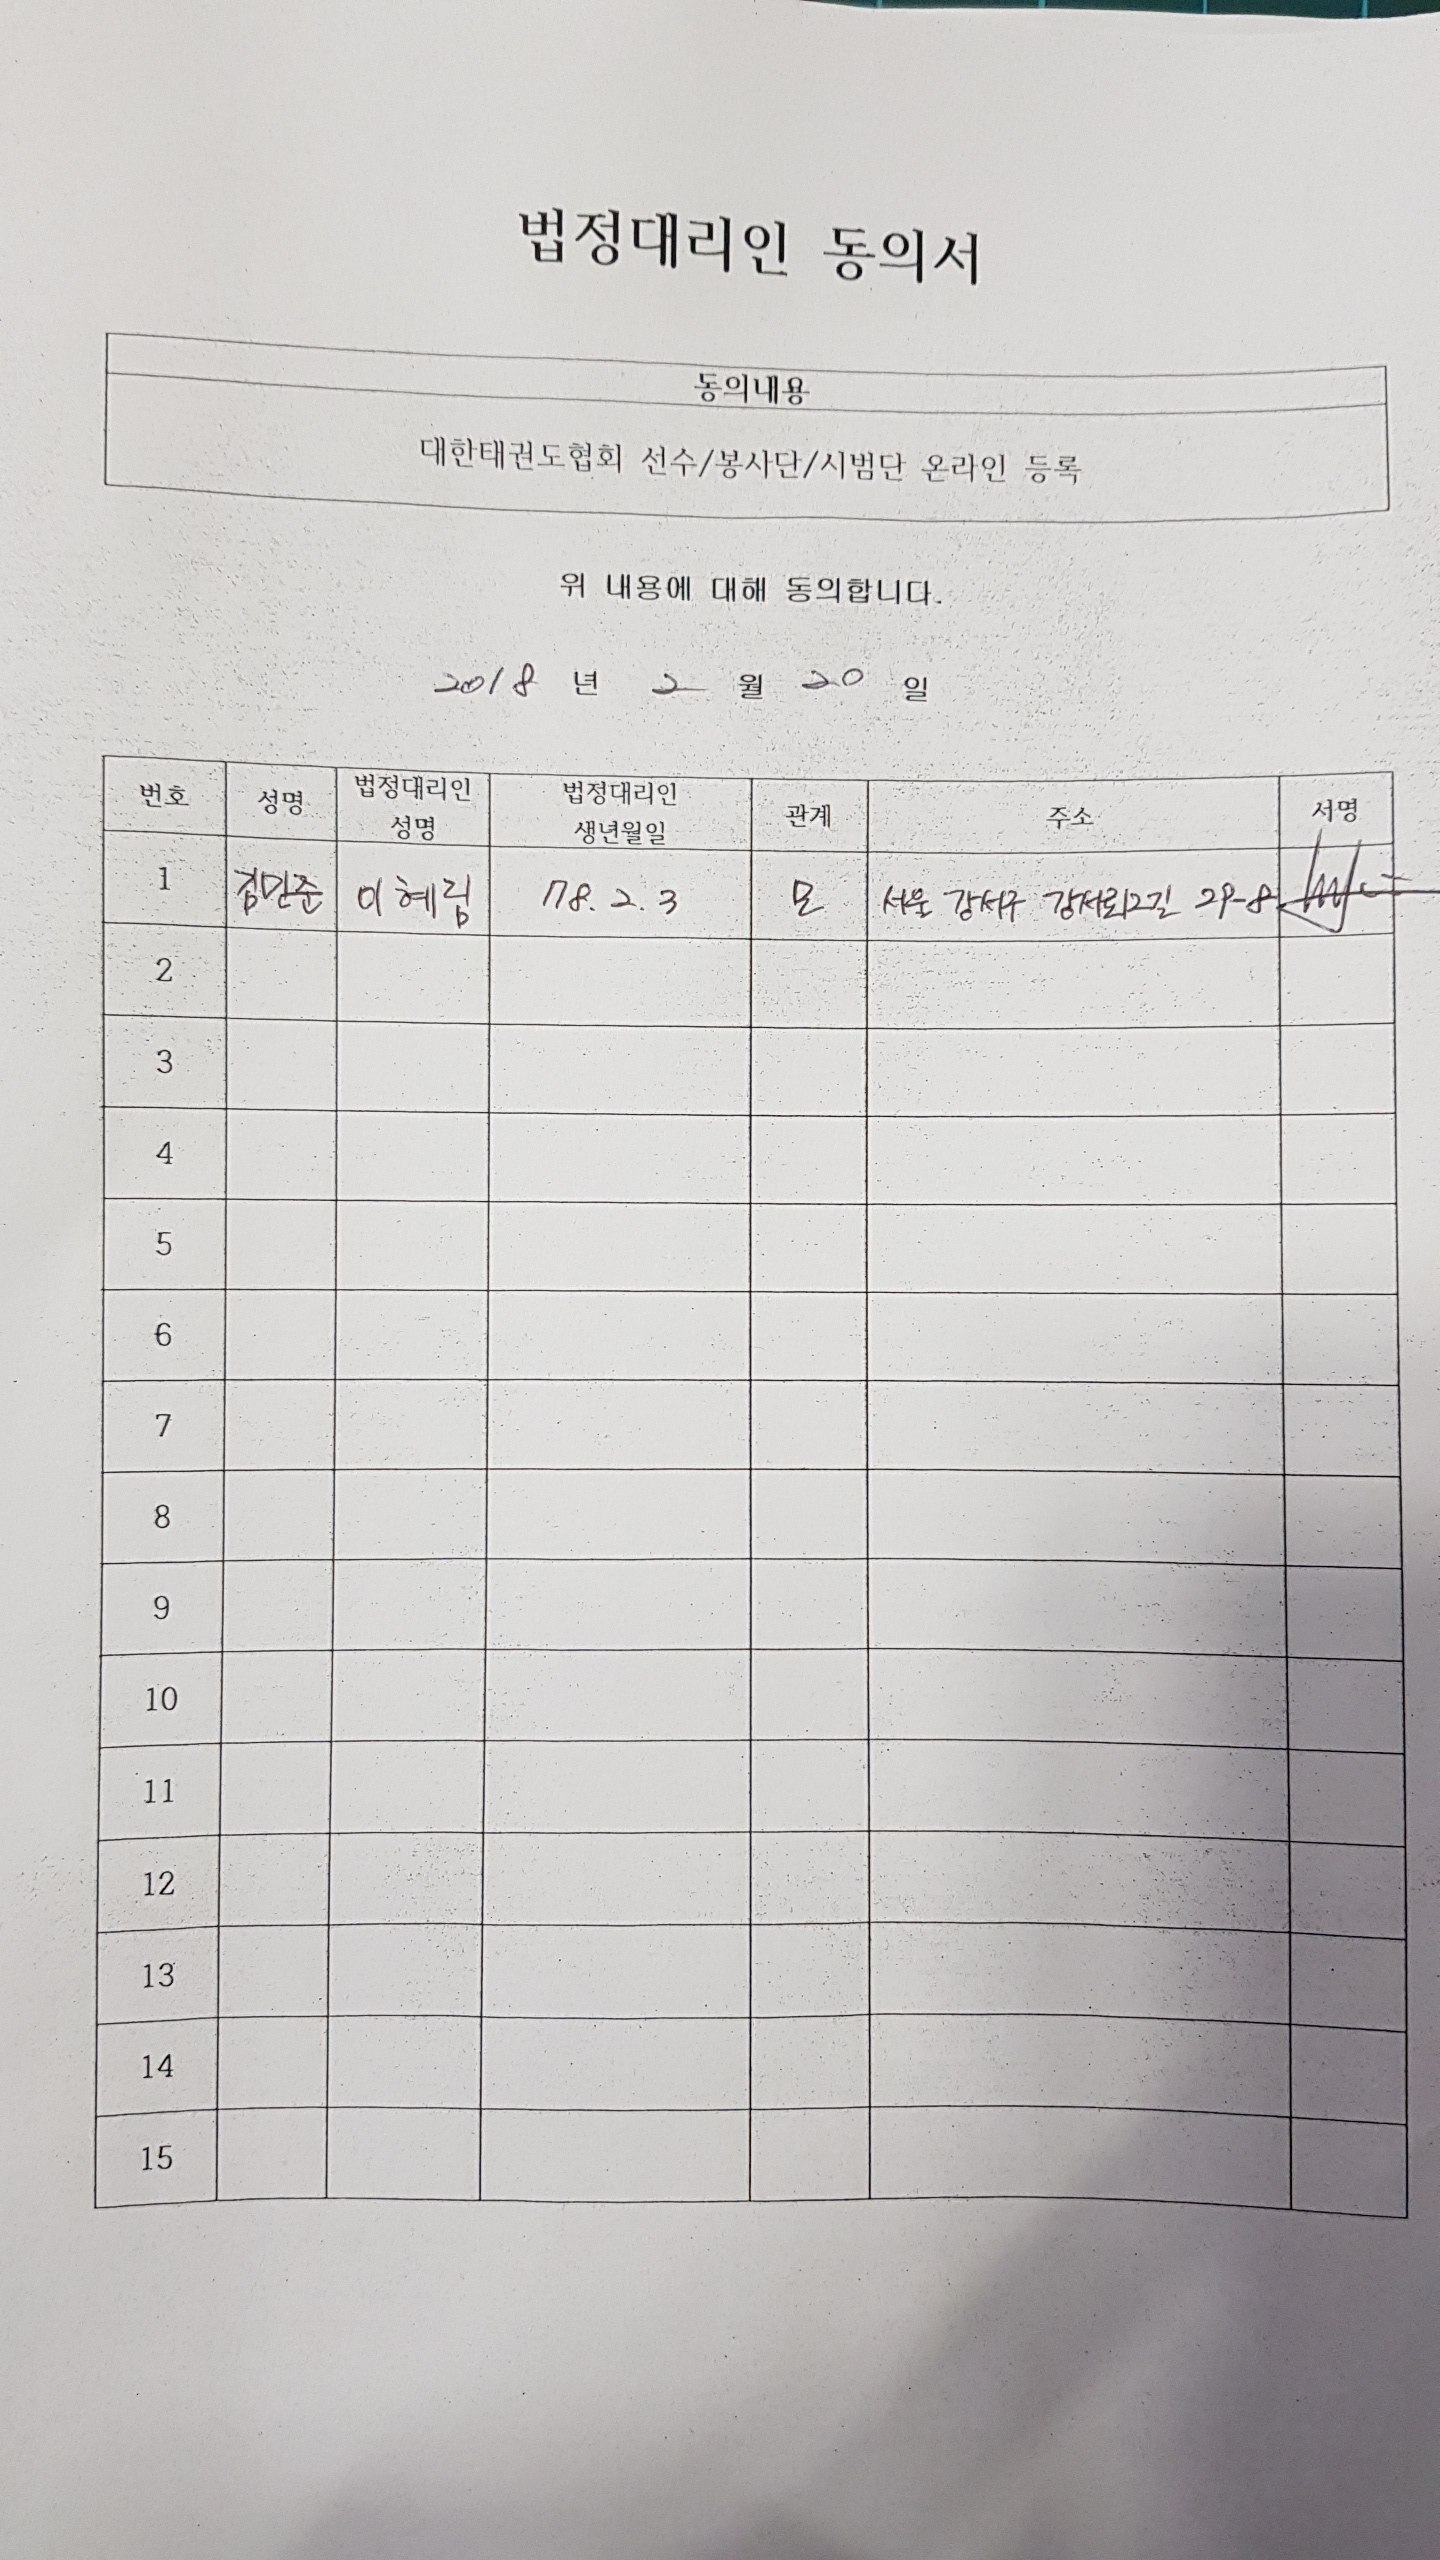 법정대리인 동의서
동의내용
대한태권도협회 선수/봉사단/시범단 온라인 등록
위 내용에 대해 동의합니다.
2018 년 2 월 20 일
번호 성명 법정대리인 성명 법정대리인 생년월일 관계 주소 서명
1 김민준 이혜림 78. 2. 3 모 서울 강서구 29-8
2
3
4
5
6
7
8
9
10
11
12
13
14
15